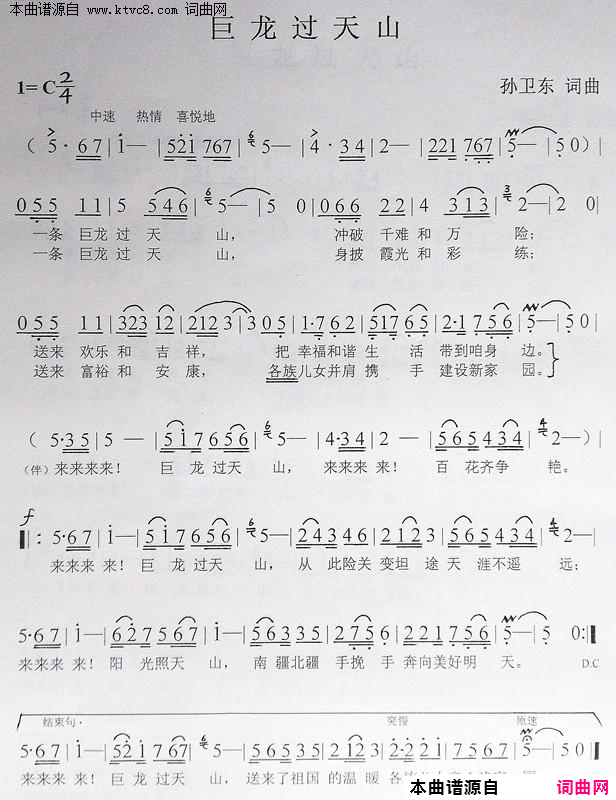 本曲谱源自
www.ktvc8.com 词曲网
巨龙过天山
1=C 2/4
孙卫东 词曲
中速 热情 喜悦地
( 5·67 | i— | 521 767 | 5— | 4·34 | 2— | 221 767 | 5— | 50 ) |
055 11 | 5 546 | 5— | 5 0 | 066 22 | 4 313 | 2— | 2 0 |
一条 巨龙 过 天 山, 冲破 千难 和 万 险;
一条 巨龙 过 天 山, 身披 霞光 和 彩 练;
055 11 | 323 12 | 2123 | 3 05 | 1·762 | 51765 | 2·1756 | 5— | 50 |
送来 欢乐 和 吉 祥, 把 幸福和谐 生 活 带到咱身 边。
送来 富裕 和 安 康, 各族儿女并肩 携 手 建设新家 园。
( 5·35 | 5 — | 517656 | 5— | 4·34 | 2— | 565434 | 2— ) |
(伴) 来来来来! 巨龙 过天 山, 来来来 来! 百 花齐争 艳。
f
5·67 | i— | 517656 | 5— | 24346 | 543246 | 565434 | 2— |
来来来 来! 巨龙 过天 山, 从 此险关 变坦 途 天 涯不遥 远;
5·67 | i— | 627567 | 5— | 56335 | 2756 | 2·21756 | 5— | 5 0 :|
来来来 来! 阳 光照天 山, 南 疆北疆 手挽 手 奔向美好明 天。 D.C
结束句· 突慢 原速
5·67 | i— | 521767 | 5— | 56335 | 2123 | 2·2217 | 5— | 5 0
来来来 来! 巨 龙 过天 山, 送来了祖国 的温 暖
本曲谱源自 词曲网